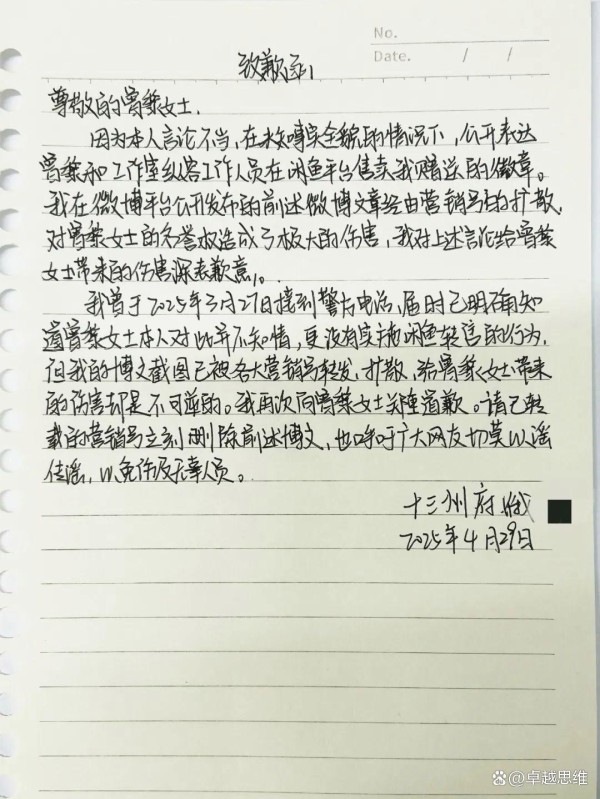 No.
Date. / /
致歉函
尊敬的曾黎女士:
因为本人言论不当,在未知晓实全貌的情况下,公开表达
曾黎和工作室纵容工作人员在闲鱼平台售卖我赠送的徽章。
我在微博平台公开发布的前述微博文章经由营销号的扩散,
对曾黎女士的名誉权造成了极大的伤害,我对上述言论给曾黎
女士带来的伤害深表歉意。
我曾于2025年3月27日接到警方电话,届时已明确知
道曾黎女士本人对此并不知情,更没有实施闲鱼转售的行为,
但我的博文截图已被各大营销号转发、扩散,给曾黎女士带来
的伤害却是不可逆的。我再次向曾黎女士郑重道歉。请已转
载的营销号立刻删除前述博文,也呼吁广大网友切莫以谣
传谣,以免伤及无辜人员。
十三州府
2025年4月29日
卓越思维